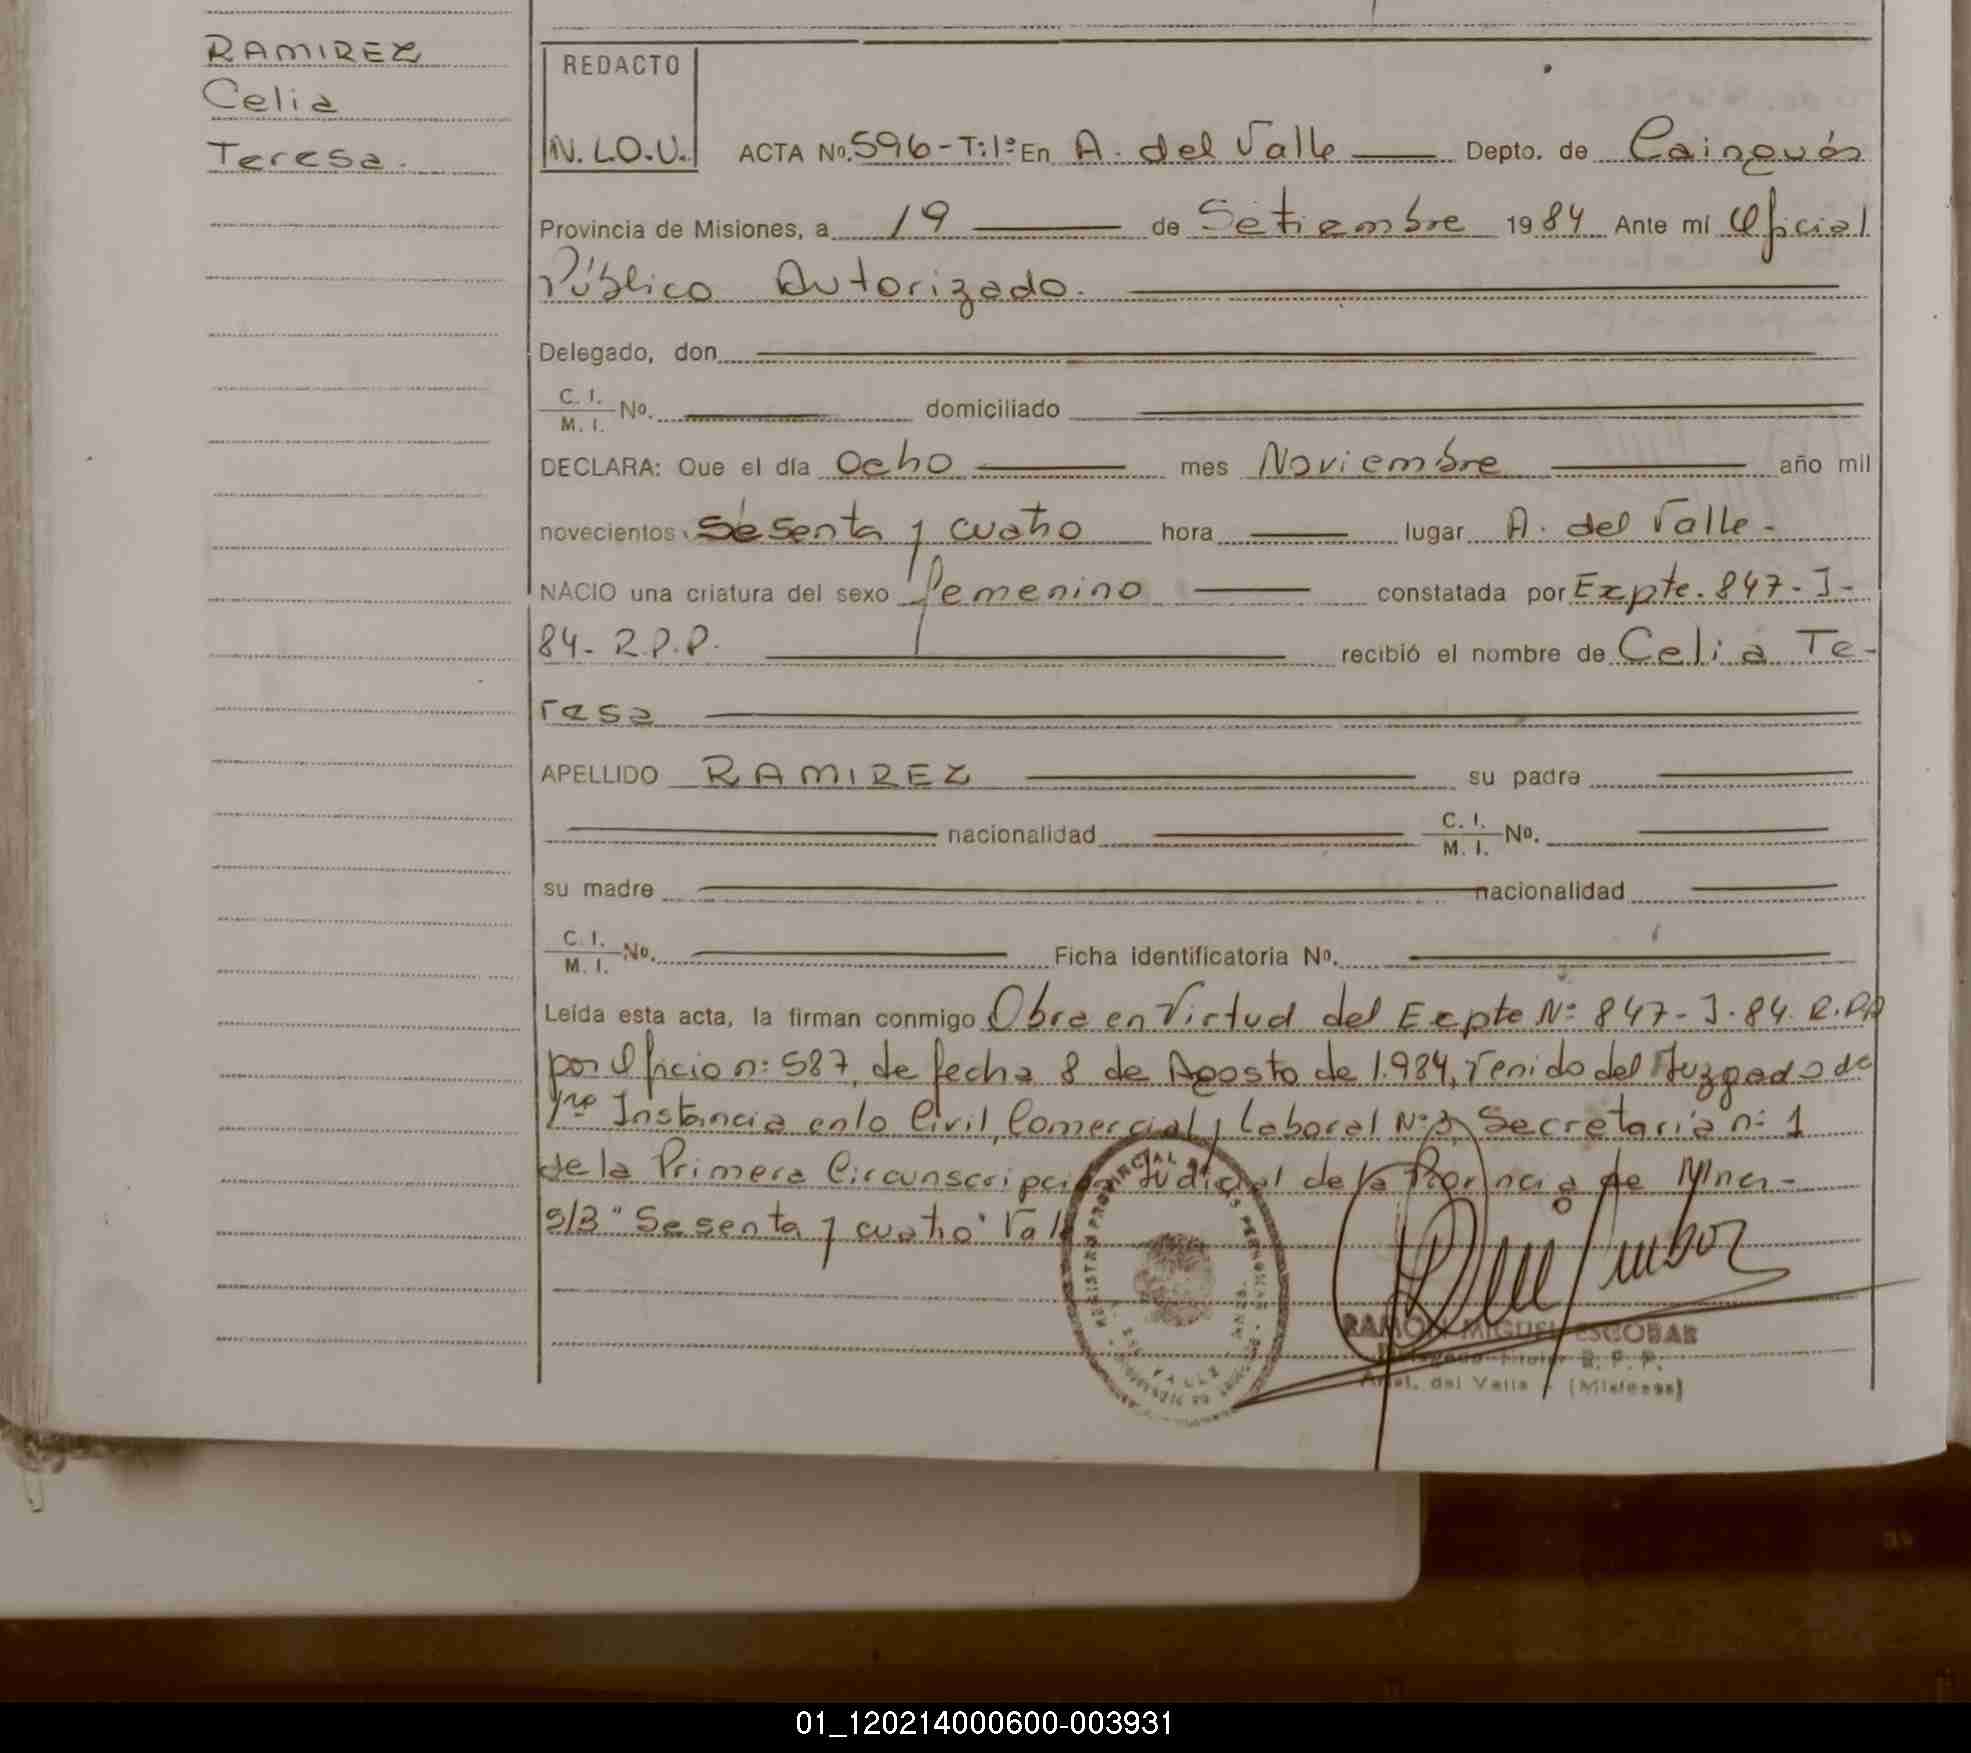 RAMIREZ
Celia
Teresa.
REDACTO
N.L.O.U.
ACTA No. 596-T:1º En A. del Valle Depto. de Cainguás
Provincia de Misiones, a 19 de Setiembre 1984 Ante mí Oficial
Público Autorizado.
Delegado, don
C. I.
M. I. No. domiciliado
DECLARA: Que el día Ocho mes Noviembre año mil
novecientos sesenta y cuatro hora lugar A. del Valle-
NACIO una criatura del sexo femenino constatada por Expte. 847-J-
84- R.P.P. recibió el nombre de Celia Te-
resa
APELLIDO RAMIREZ su padre
nacionalidad C. I.
M. I. No.
su madre nacionalidad
C. I.
M. I. No. Ficha identificatoria No.
Leída esta acta, la firman conmigo Obra en Virtud del Expte Nº 847-J-84. R.P.P
por Oficio nº 587, de fecha 8 de Agosto de 1.984, venido del Juzgado de
1ra Instancia en lo Civil, Comercial y Laboral Nº 3, Secretaría nº 1
de la Primera Circunscripción Judicial de la Provincia de Mnes-
S/B "Sesenta y cuatro" Vale
REGISTRO PROVINCIAL DE LAS PERSONAS
RAMÓN MIGUEL ESCOBAR
Delegado Titular R. P. P.
Arist. del Valle - (Misiones)
01_120214000600-003931